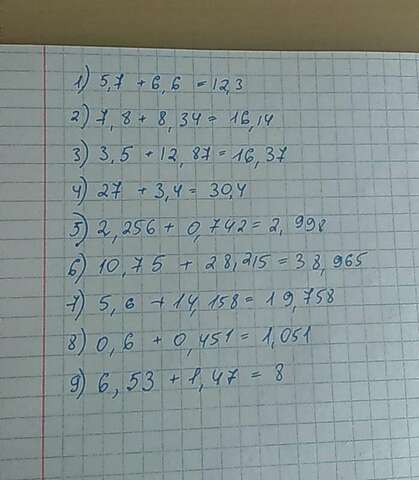 1) 5,7 + 6,6 = 12,3
2) 7,8 + 8,34 = 16,14
3) 3,5 + 12,87 = 16,37
4) 27 + 3,4 = 30,4
5) 2,256 + 0,742 = 2,998
6) 10,75 + 28,215 = 38,965
7) 5,6 + 14,158 = 19,758
8) 0,6 + 0,451 = 1,051
9) 6,53 + 1,47 = 8